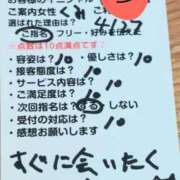 ご案内女性 くれ 4/27
選ばれた理由は？
ご指名 フリー・好みを伝えて
※点数は10点満点です
・容姿は？10 ・優しさは？10
・接客態度は？ 10
・サービス内容は？ 10
・ご満足度は？ 10
・次回指名は？ する しない
・受付の対応は？ 10
・感想お願いします
すぐに会いたく